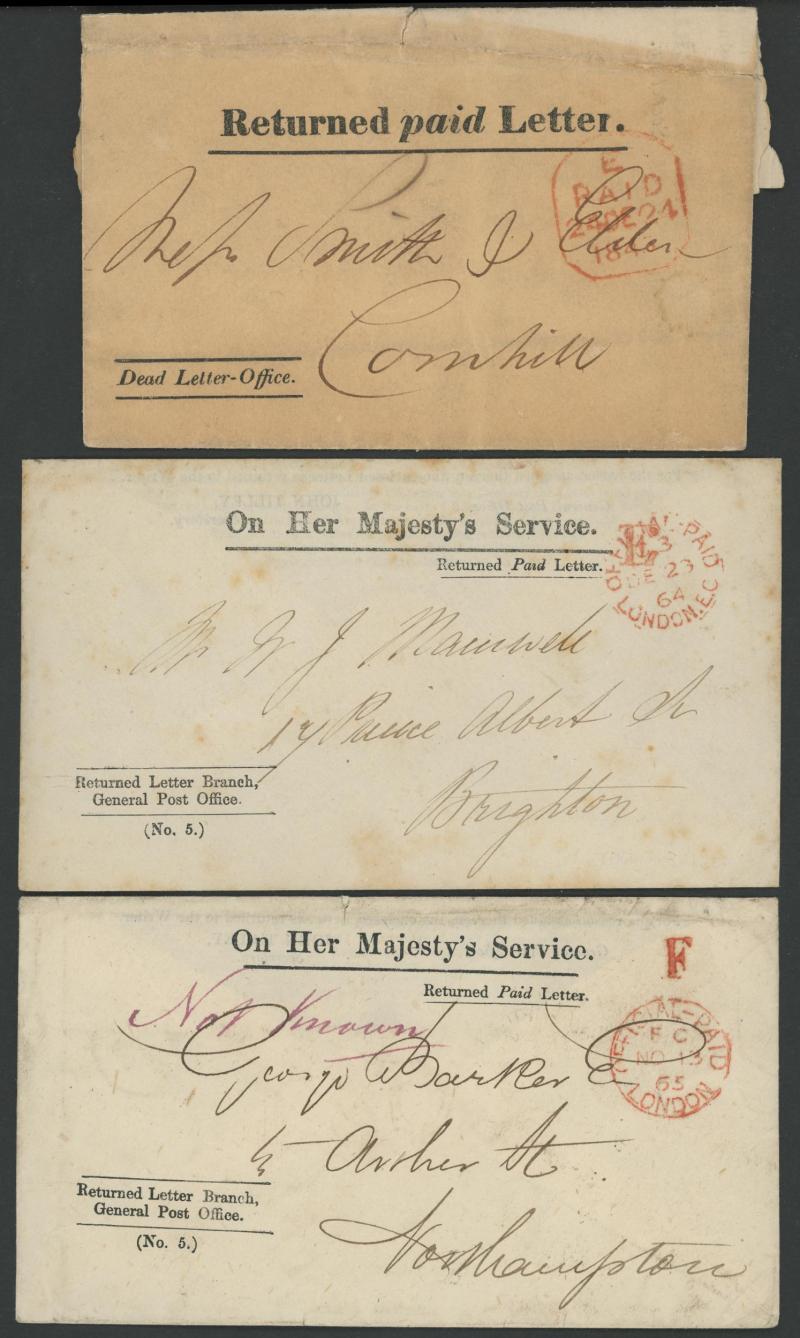 Returned paid Letter.
E
PAID
24DE24
184
Mess Smith & Elder
Cornhill
Dead Letter-Office.
On Her Majesty's Service.
Returned Paid Letter.
OFFICIAL-PAID
3
DE 23
64
LONDON.E.C
Mr W J
17 Prince Albert St
Brighton
Returned Letter Branch,
General Post Office.
(No. 5.)
On Her Majesty's Service.
F
Returned Paid Letter.
Not Known
OFFICIAL-PAID
F C
NO 13
65
LONDON
George Barker
5 Archer St
Northampton
Returned Letter Branch,
General Post Office.
(No. 5.)